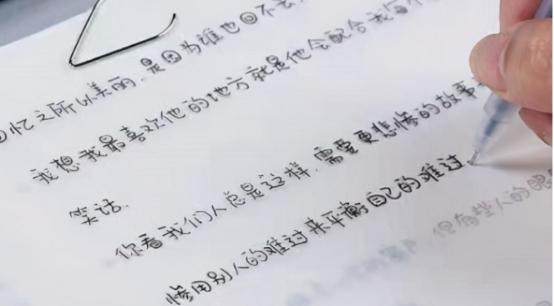 回忆之所以美丽.是因为谁也回不去
我想我最喜欢他的地方就是他会配合我每个
笑话.
你看我们人总是这样.需要更悲惨的故事
惨用别人的难过来平衡自己的难过.
但有些人的